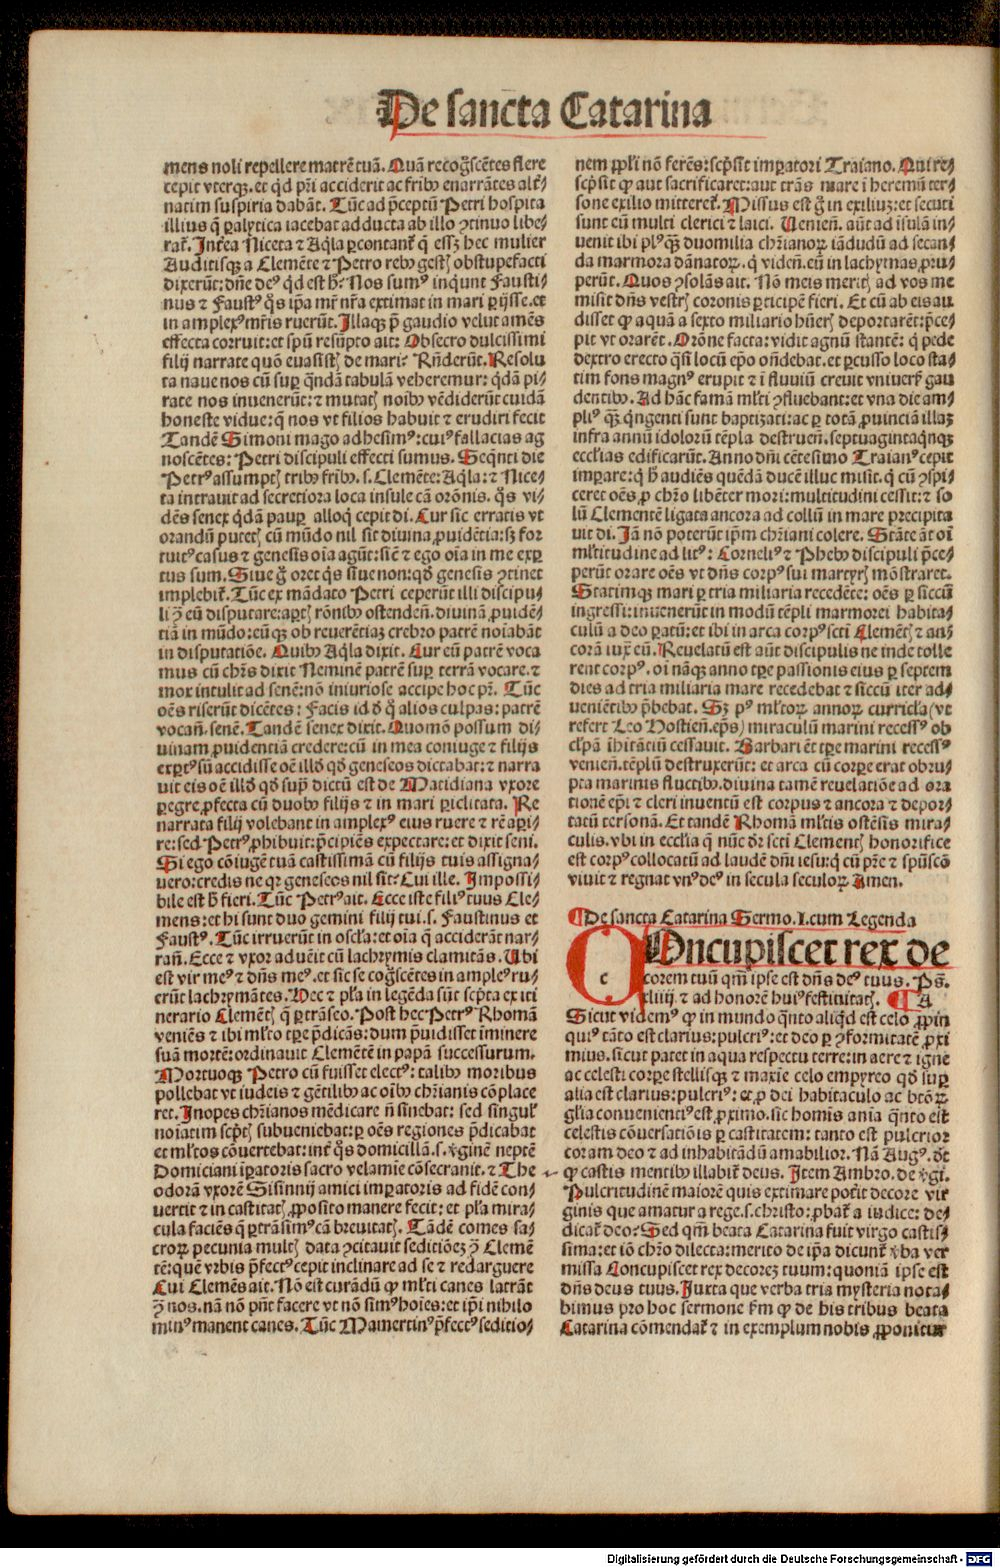 De sancta Catarina
mens noli repellere matrē tuā. Quā recog̃scētes flere
cepit vterqꝫ. et qd p̄ri acciderit ac fribꝰ enarrātes alt̓/
natim suspiria dabāt. Tūc ad p̄ceptū Petri hospita
illius q̄ ꝑalytica iacebat adducta ab illo ꝯtinuo libe/
rat̓. Int̓ea Niceta ⁊ Aq̇la ꝑcontant̓ q̄ essꝫ hec mulier
Auditisqꝫ a Clemēte ⁊ Petro rebꝰ gestꝭ obstupefacti
dixerūt: dn̄e deꝰ qd est h̄? Nos sumꝰ inq̇unt Fausti/
nus ⁊ Faustꝰ q̄s ip̄a mr̄ nr̄a extimat in mari ꝑijsse. et
in amplexꝰ mr̄is ruerūt. Illaqꝫ p̄ gaudio velut amēs
effecta corruit: et spū resūpto ait: Obsecro dulcissimi
filij narrate quō euasistꝭ de mari? Rn̄derūt. Resolu
ta naue nos cū suꝑ q̄ndā tabulā veheremur: q̇dā pi/
rate nos inuenerūt: ⁊ mutatꝭ noībꝰ vēdiderūt cuidā
honeste vidue: q̄ nos vt filios habuit ⁊ erudiri fecit
Tandē Simoni mago adhesimꝰ: cuiꝰ fallacias ag
noscētes: Petri discipuli effecti sumus. Seq̄nti die
Petrꝰ assumptꝭ tribꝰ fribꝰ. s. Clemēte: Aq̇la: ⁊ Nice/
ta intrauit ad secretiora loca insule cā orōnis. q̄s vi/
dēs senex q̇dā pauꝑ alloq̇ cepit di. Cur sic erratis vt
orandū putetꝭ cū mūdo nil sit diuina ꝓuidētia: sꝫ for
tuitꝰ casus ⁊ genesis oīa agūt: sic̄ ⁊ ego oīa in me exꝑ
tus sum. Siue g̊ oret q̇s siue non: qd̓ genesis ꝯtinet
implebit̓. Tūc ex mādato Petri ceperūt illi discipu/
li ꝯ̄ eū disputare: aꝑtꝭ rōnibꝰ ostenden̄. diuinā ꝓuidē/
tiā in mūdo: cūqꝫ ob reuerētiaꝫ crebro patrē noīabāt
in disputatiōe. Quibꝰ Aq̇la dixit. Cur eū patrē voca
mus cū chr̄s dixit Neminē patrē suꝑ terrā vocare. ⁊
mox intulit ad senē: nō iniuriose accipe hoc pr̄. Tūc
oēs riserūt dicētes: Facis id ꝺ̇ q̊ alios culpas: patrē
vocan̄. senē. Tandē senex dixit. Quomō possum di/
uinam ꝓuidentiā credere: cū in mea coniuge ⁊ filijs
exꝑtꝰ sū accidisse oē illd̓ qd̓ geneseos dictabat: ⁊ narra
uit eis oē illd̓ qd̓ suꝑ dictū est de Matidiana vxore
ꝑegre ꝓfecta cū duobꝰ filijs ⁊ in mari ꝑiclitata. Re
narrata filij volebant in amplexꝰ eius ruere ⁊ rē aꝑi/
re: sed Petrꝰ ꝓhibuit: p̄cipiēs expectare: et dixit seni.
Si ego cōiugē tuā castissimā cū filijs tuis assigna/
uero: credis ne qꝛ geneseos nil sit? Cui ille. Impossi/
bile est h̄ fieri. Tūc Petrꝰ ait. Ecce iste filiꝰ tuus Cle/
mens: et hi sunt duo gemini filij tui. s. Faustinus et
Faustꝰ. Tūc irruerūt in oscl̓a: et oīa q̄ acciderāt nar/
ran̄. Ecce ⁊ vxor aduēit cū lachrymis clamitās. Ubi
est vir meꝰ ⁊ dn̄s meꝰ. et sic se cog̃scētes in ampleꝰ ru/
erūt lachrymātes. Hec ⁊ pl̓a in legēda sūt scp̄ta ex iti
nerario Clemētꝭ q̄ ꝑtrāseo. Post hec Petrꝰ Rhomā
veniēs ⁊ ibi ml̓to tꝑe p̄dicās: dum p̄uidisset īminere
suā mortē: ordinauit Clemētē in papā successurum.
Mortuoqꝫ Petro cū fuisset electꝰ: talibꝰ moribus
pollebat vt iudeis ⁊ gētilibꝰ ac oībꝰ chr̄ianis cōplace
ret. Inopes chr̄ianos mēdicare n̄ sinebat: sed singul̓
noīatim scp̄tꝭ subueniebat: ꝑ oēs regiones p̄dicabat
et ml̓tos cōuertebat: int̓ q̄s domicillā. s. ꝟginē neptē
Domiciani īꝑatoris sacro velamīe cōsecrauit. ⁊ The
odorā vxorē Sisinnij amici imꝑatoris ad fidē con/
uertit ⁊ in castitatꝭ ꝓposito manere fecit: et pl̓a mira/
cula faciēs q̄ ꝑtrāsimꝰ cā breuitatꝭ. Tādē comes sa/
croꝝ pecunia multꝭ data ꝯcitauit seditiōeꝫ ꝯ̄ Clemē
tē: quē vrbis p̄fectꝰ cepit inclinare ad se ⁊ redarguere
Cui Clemēs ait. Nō est curādū ꝙ ml̓ti canes latrāt
ꝯ̄ nos. nā nō pn̄t facere vt nō simꝰ hoīes: et ip̄i nihilo
minꝰ manent canes. Tūc Mamertinꝰ p̄fectꝰ seditio/
nem ppl̓i nō ferēs: scp̄sit imꝑatori Traiano. Qui re/
scp̄sit ꝙ aut sacrificaret: aut trās mare ī heremū ter/
sone exilio mitteret̓. Missus est g̊ in exiliuꝫ: et secuti
sunt eū multi clerici ⁊ laici. Uenien̄. aūt ad īsulā in/
uenit ibi plꝰqꝫ duomilia chr̄ianoꝝ iādudū ad secan/
da marmora dānatoꝝ. q̇ viden̄. eū in lachymas ꝓru/
perūt. Quos ꝯsolās ait. Nō meis meritꝭ ad vos me
misit dn̄s vestrꝭ coronis ꝑticipē fieri. Et cū ab eis au
disset ꝙ aquā a sexto miliario hūerꝭ deportarēt: p̄ce/
pit vt orarēt. Orōne facta: vidit agnū stantē: q̇ pede
dextro erecto q̇si locū ep̄o on̄debat. et ꝑcusso loco sta/
tim fons magnꝰ erupit ⁊ ī fluuiū creuit vniuersꝭ gau
dentibꝰ. Ad hāc famā ml̓ti ꝯfluebant: et vna die am/
pliꝰ qꝫ q̇ngenti sunt baptizati: ac ꝑ totā ꝓuinciā illaꝫ
infra annū idolorū tēpla destruen̄. septuagintaq̇nqꝫ
eccl̓ias edificarūt. Anno dn̄i cētesimo Traianꝰ cepit
imꝑare: q̇ h̄ audiēs quēdā ducē illuc misit. q̇ cū ꝯspi/
ceret oēs ꝓ chr̄o libēter mori: multitudini cessit: ⁊ so
lū Clementē ligata ancora ad collū in mare precipita
uit di. Iā nō poterūt ip̄m chr̄iani colere. Stāte āt oī
ml̓titudine ad litꝰ: Corneliꝰ ⁊ Phebꝰ discipuli p̄ce/
perūt orare oēs vt dn̄s corpꝰ sui martyrꝭ mōstraret.
Statimqꝫ mari ꝑ tria miliaria recedēte: oēs ꝑ siccū
ingressi: inuenerūt in modū tēpli marmorei habita/
culū a deo ꝑatū: et ibi in arca corpꝰ scti Clemētꝭ ⁊ an/
corā iux eū. Reuelatū est aūt discipulis ne inde tolle
rent corpꝰ. oī nāqꝫ anno tꝑe passionis eius ꝑ septem
dies ad tria miliaria mare recedebat ⁊ siccū iter ad/
ueniētibꝰ p̄bebat. Sꝫ pꝰ ml̓toꝝ annoꝝ curricl̓a (vt
refert Leo Hostien̄. ep̄s) miraculū marini recessꝰ ob
cl̓pā īhītātiū cessauit. Barbari ēt tꝑe marini recessꝰ
venien̄. tēplū destruxerūt: et arca cū corꝑe erat obru/
pta marinis fluctibꝰ. diuina tamē reuelatiōe ad ora
tionē ep̄i ⁊ cleri inuentū est corpus ⁊ ancora ⁊ depor/
tatū tersonā. Et tandē Rhomā ml̓tis ostēsis mira/
culis. vbi in eccl̓ia q̄ nūc dr̄ scti Clementꝭ honorifice
est corpꝰ collocatū ad laudē dn̄i iesu: q̇ cū pr̄e ⁊ spūscō
viuit ⁊ regnat vnꝰ deꝰ in secula seculoꝝ Amen.
¶De sancta Catarina Sermo. I. cum Legenda
COncupiscet rex de
corem tuū qm̄ ipse est dn̄s deꝰ tuus. Ps̄.
xliiij. ⁊ ad honorē huiꝰ festiuitatꝭ. ¶ A
Sicut videmꝰ ꝙ in mundo q̄nto aliqd̓ est celo ꝓpin
quiꝰ tāto est clariꝰ: pulcriꝰ: et deo ꝑ ꝯformitatē ꝓxi
mius. sicut patet in aqua respectu terre: in aere ⁊ igne
ac celesti corꝑe stellisqꝫ ⁊ maxīe celo empyreo qd̓ suꝑ
alia est clariꝰ: pulcriꝰ: et ꝓ dei habitaculo ac btōꝝ
gl̓ia conuenientiꝰ est ꝓximo. sic homīs aīa q̄nto est
celestis cōuersatiōis ꝑ castitatem: tanto est pulcrior
coram deo ⁊ ad inhabitādū amabilior. Nā Augꝰ. dt̄
ꝙ castis mentibꝰ illabit̓ deus. Item Ambro. de ꝟgi.
Pulcritudinē maiorē quis extimare pot̓it decore vir
ginis que amatur a rege. s. christo: ꝓbat̓ a iudice: de/
dicat̓ deo: Sed qm̄ beata Catarina fuit virgo castis/
sima: et iō chr̄o dilecta: merito de ip̄a dicunt̓ ꝟba ver
missa Concupiscet rex decoreꝫ tuum: quoniā ipse est
dn̄s deus tuus. Iuxta que verba tria mysteria nota/
bimus pro hoc sermone ẜm ꝙ de his tribus beata
Catarina cōmendat̓ ⁊ in exemplum nobis ꝓponitur
Digitalisierung gefördert durch die Deutsche Forschungsgemeinschaft - DFG